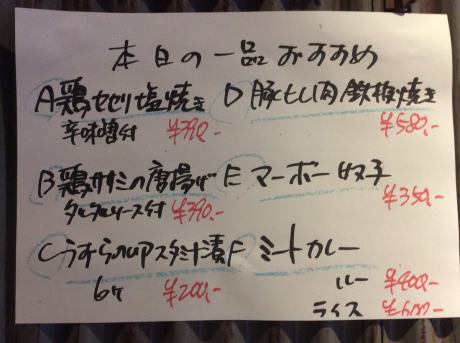 本日の一品おすすめ
A鶏セセリ塩焼き
辛味噌付 ¥390,-
B鶏ササミの唐揚げ
タルタルソース付 ¥390,-
Cうずらの卵スタミナ漬
6ケ ¥200,-
D豚とし肉鉄板焼き
¥580,-
Eマーボー奴子
¥350,-
Fミートカレー
ルー ¥400,-
ライス